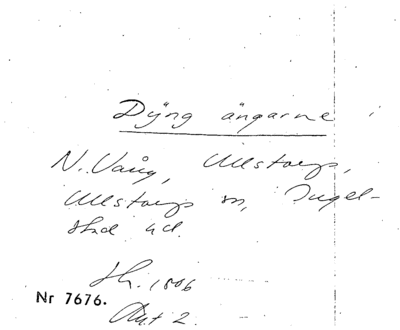 Dyng ängarne
N. Vång, Ullstorps,
Ullstorps sn, Ingel-
stad hd.
Sk. 1806
Nr 7676.
Akt 2.